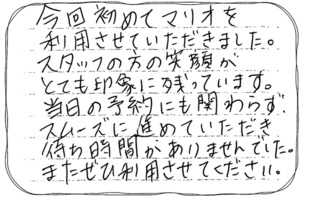 今回初めてマリオを
利用させていただきました。
スタッフの方の笑顔が
とても印象に残っています。
当日の予約にも関わらず、
スムーズに進めていただき
待ち時間がありませんでした。
またぜひ利用させてください。